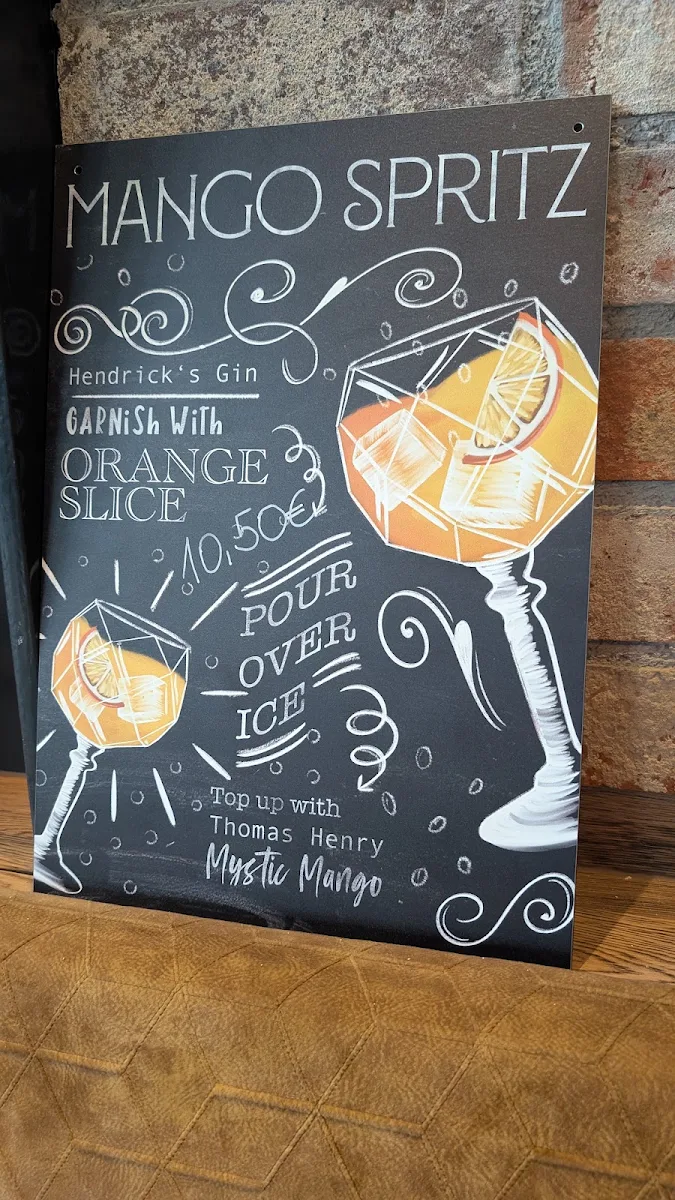 MANGO SPRITZ
Hendrick‘s Gin
GARNiSh WiTh
ORANGE
SLICE
10,50€
POUR
OVER
ICE
Top up with
Thomas Henry
Mystic Mango